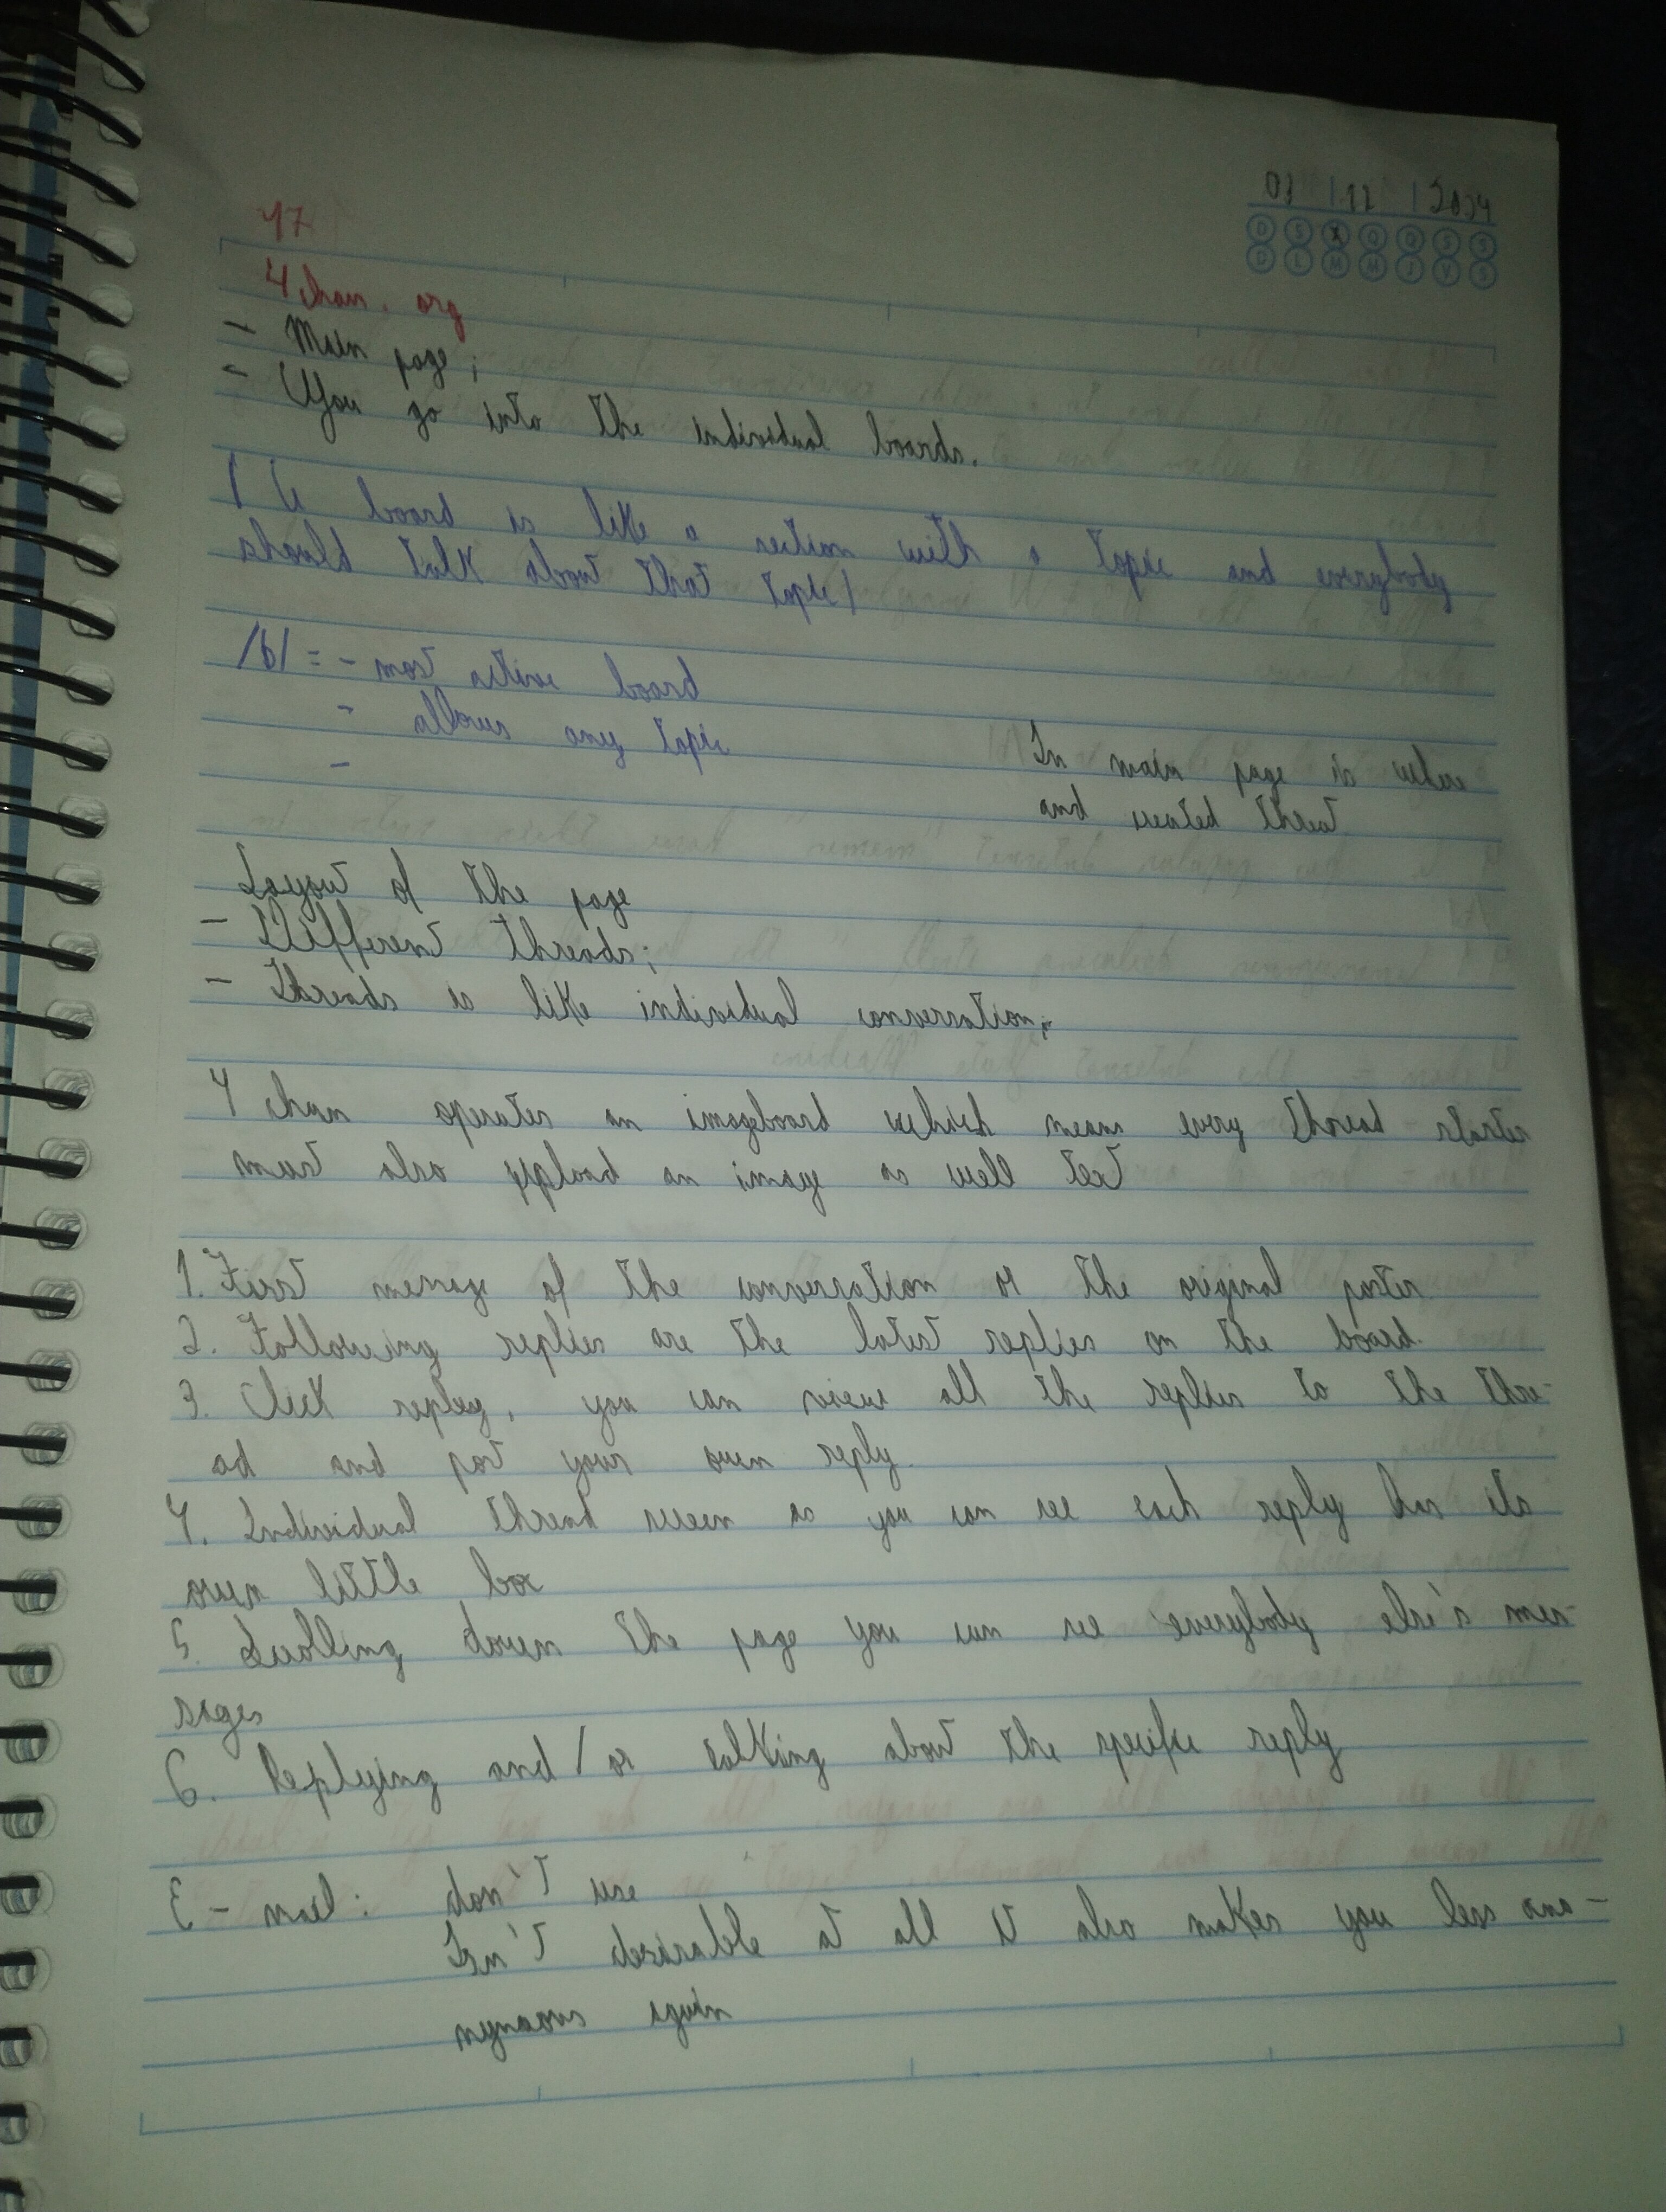 03 12 2024
D S X Q Q S S
D L M M J V S
47
4chan.org
- Main page;
- You go into the individual boards.
( A board is like a section with a topic and everybody
should talk about that topic)
/b/ = - most active board
- allows any topic
-
In main page is where
and created threat
Layout of the page
- Different threads;
- Threads is like individual conversation;
4 chan operates an imageboard which means every thread starter
must also upload an image as well text
1. First message of the conversation or the original poster
2. Following replies are the latest replies on the board.
3. Click reply, you can view all the replies to the thre-
ad and post your own reply.
4. Individual thread screen as you can see each reply has its
own little box
5. Scrolling down the page you can see everybody else's mes-
sages
6. Replying and/or talking about the specific reply
E - mail: don't use
Isn't desirable at all It also makes you less ano-
nymous again